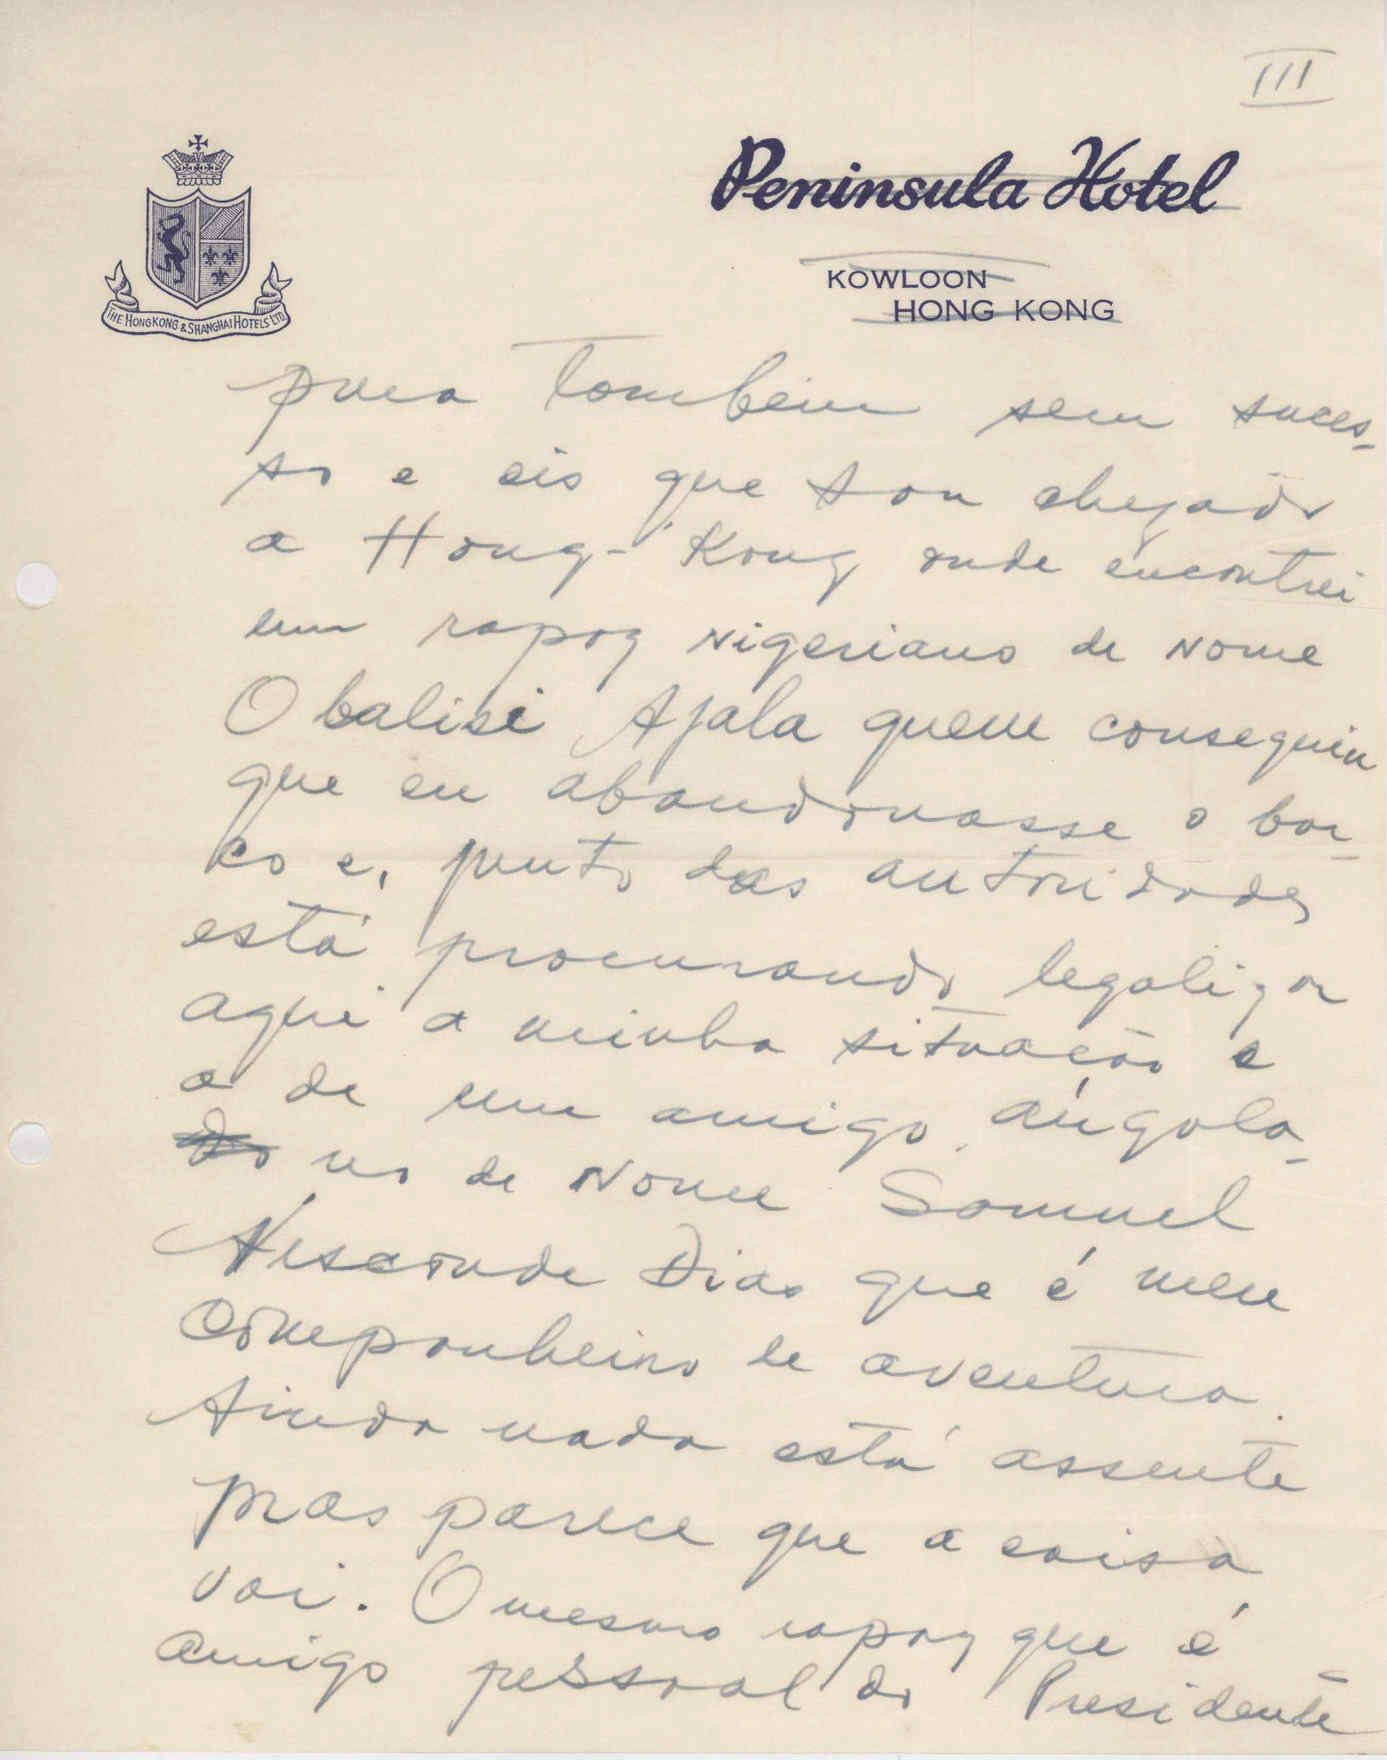 III
Peninsula Hotel
KOWLOON
HONG KONG
THE HONGKONG & SHANGHAI HOTELS LTD
pura tombém sem suces-
so e eis que sou chegado
a Hong-Kong onde encontrei
um rapaz nigeriano de nome
Obalisi Ajala quem conseguiu
que eu abandonasse o bar-
co e, junto das autoridades
está procurando legalizar
aqui a minha situação e
a de um amigo ángola-
no de nome Samuel
Visconde Dias que é meu
companheiro de aventura.
Ainda nada está assente
mas parece que a coisa
vai. O mesmo rapaz que é
amigo pessoal do Presidente